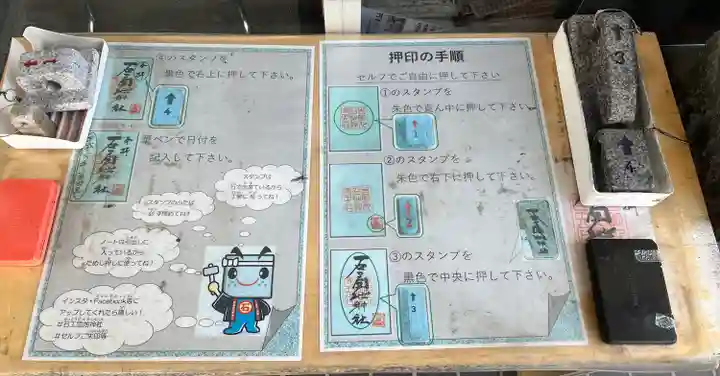 押印の手順
セルフでご自由に押して下さい
①のスタンプを
朱色で真ん中に押して下さい。
1
②のスタンプを
朱色で右下に押して下さい。
2
③のスタンプを
黒色で中央に押して下さい。
3
④のスタンプを
黒色で右上に押して下さい。
4
筆ペンで日付を
記入して下さい。
スタンプは
ノートは引出しに
入っているから
ためし押しに使ってね！
インスタ・Facebook等に
アップしてくれたら嬉しい！
#セルフご朱印等
石
1
3
4